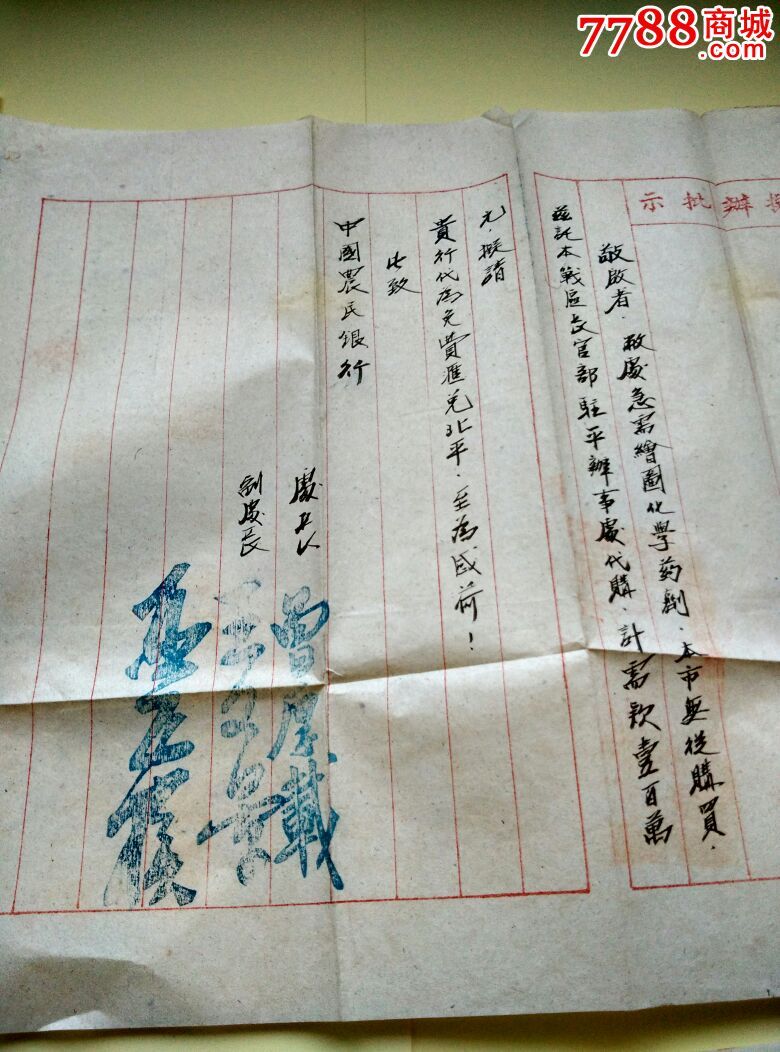 7788商城
.com
擬辦批示
敬啟者．敝處急需繪圖化學药劑．本市無從購買．
茲託本戰區長官部駐平辦事處代購．計需款壹百萬
元．擬請
貴行代為免費匯兌北平．至為感荷！
此致
中國農民銀行
處長
副處長
曾厚載